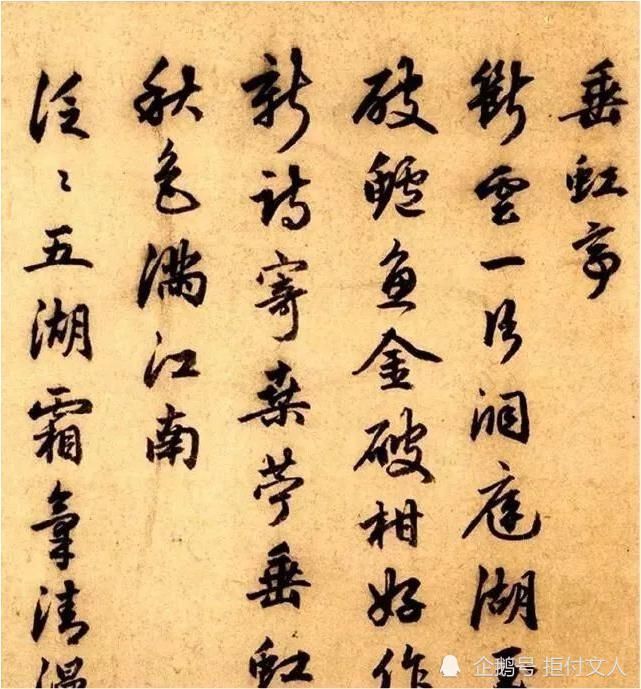 垂虹亭
斷雲一片洞庭湖玉
破鱸魚金破柑好作
新詩寄桑苧垂虹
秋色滿江南
泛〻五湖霜氣清漫
企鹅号 拒付文人